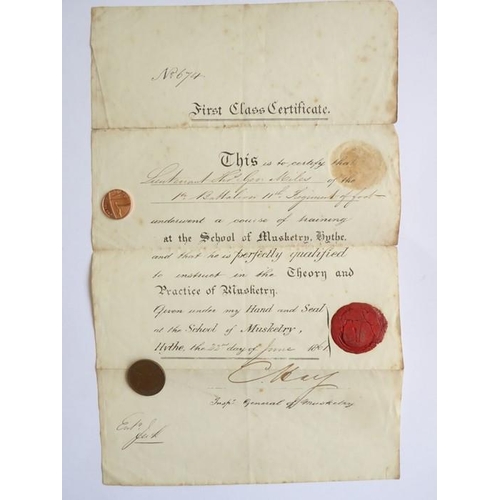 No 674
First Class Certificate.
This is to certify that
Lieutenant of the
1st Battalion 11th Regiment of foot
underwent a course of training
at the School of Musketry, Hythe.
and that he is perfectly qualified
to instruct in the Theory and
Practice of Musketry.
Given under my Hand and Seal
at the School of Musketry,
Hythe, the 22nd day of June 186
Inspr. General of Musketry